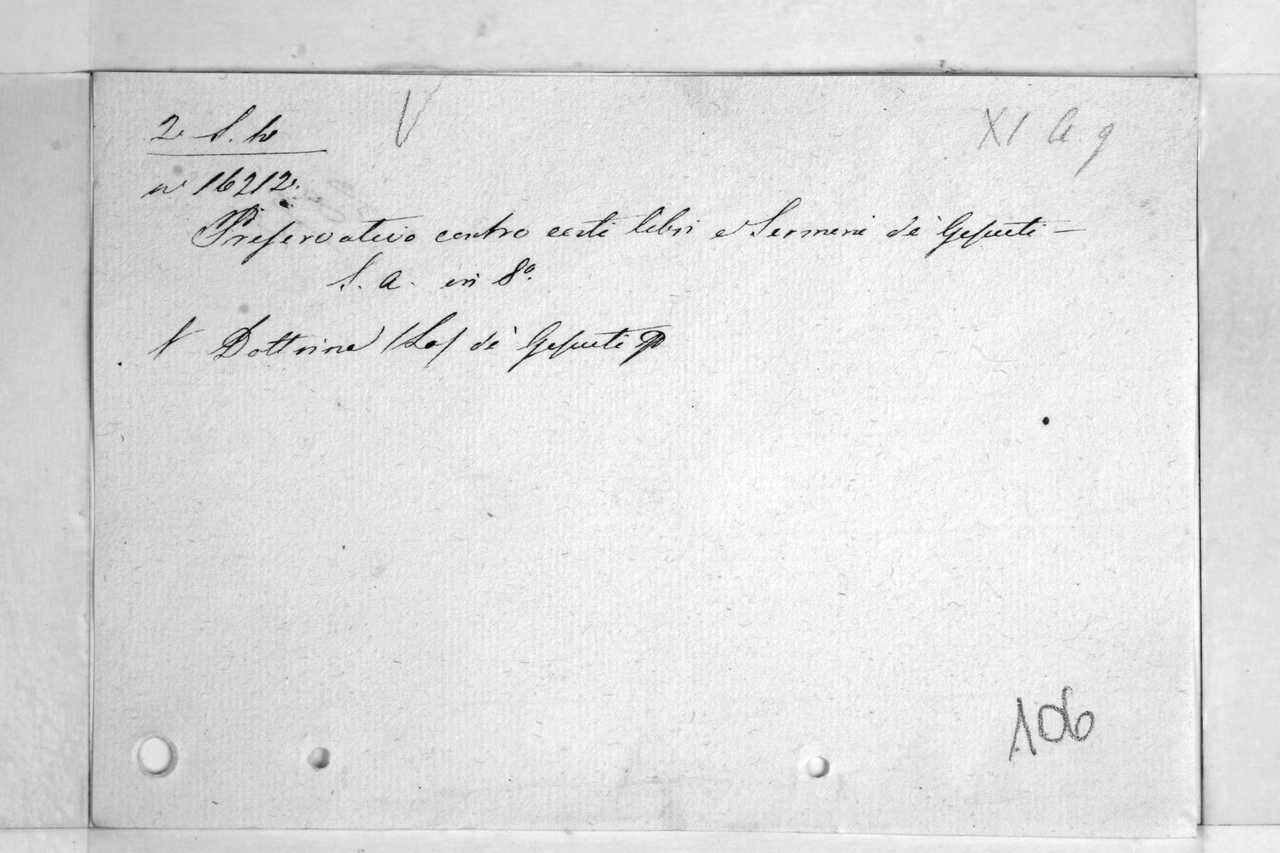 2. S. h
V
XI a 9
n.º 16212.
Preservativo contro certi libri e Sermoni de' Gesuiti —
S. a. in 8º.
V Dottrina (La) de' Gesuiti
106